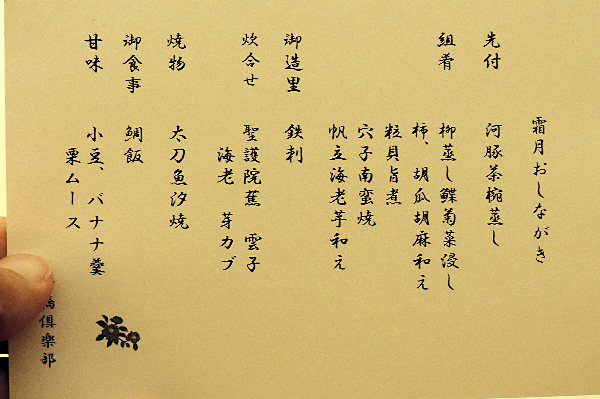 霜月おしながき
先付 河豚茶椀蒸し
組肴 柳蒸し鰈菊菜浸し
柿、胡瓜胡麻和え
粒貝旨煮
穴子南蛮焼
帆立海老芋和え
御造里 鉄刺
炊合せ 聖護院蕪 雲子
海老 芽カブ
焼物 太刀魚汐焼
御食事 鯛飯
甘味 小豆、バナナ羹
栗ムース
倶楽部